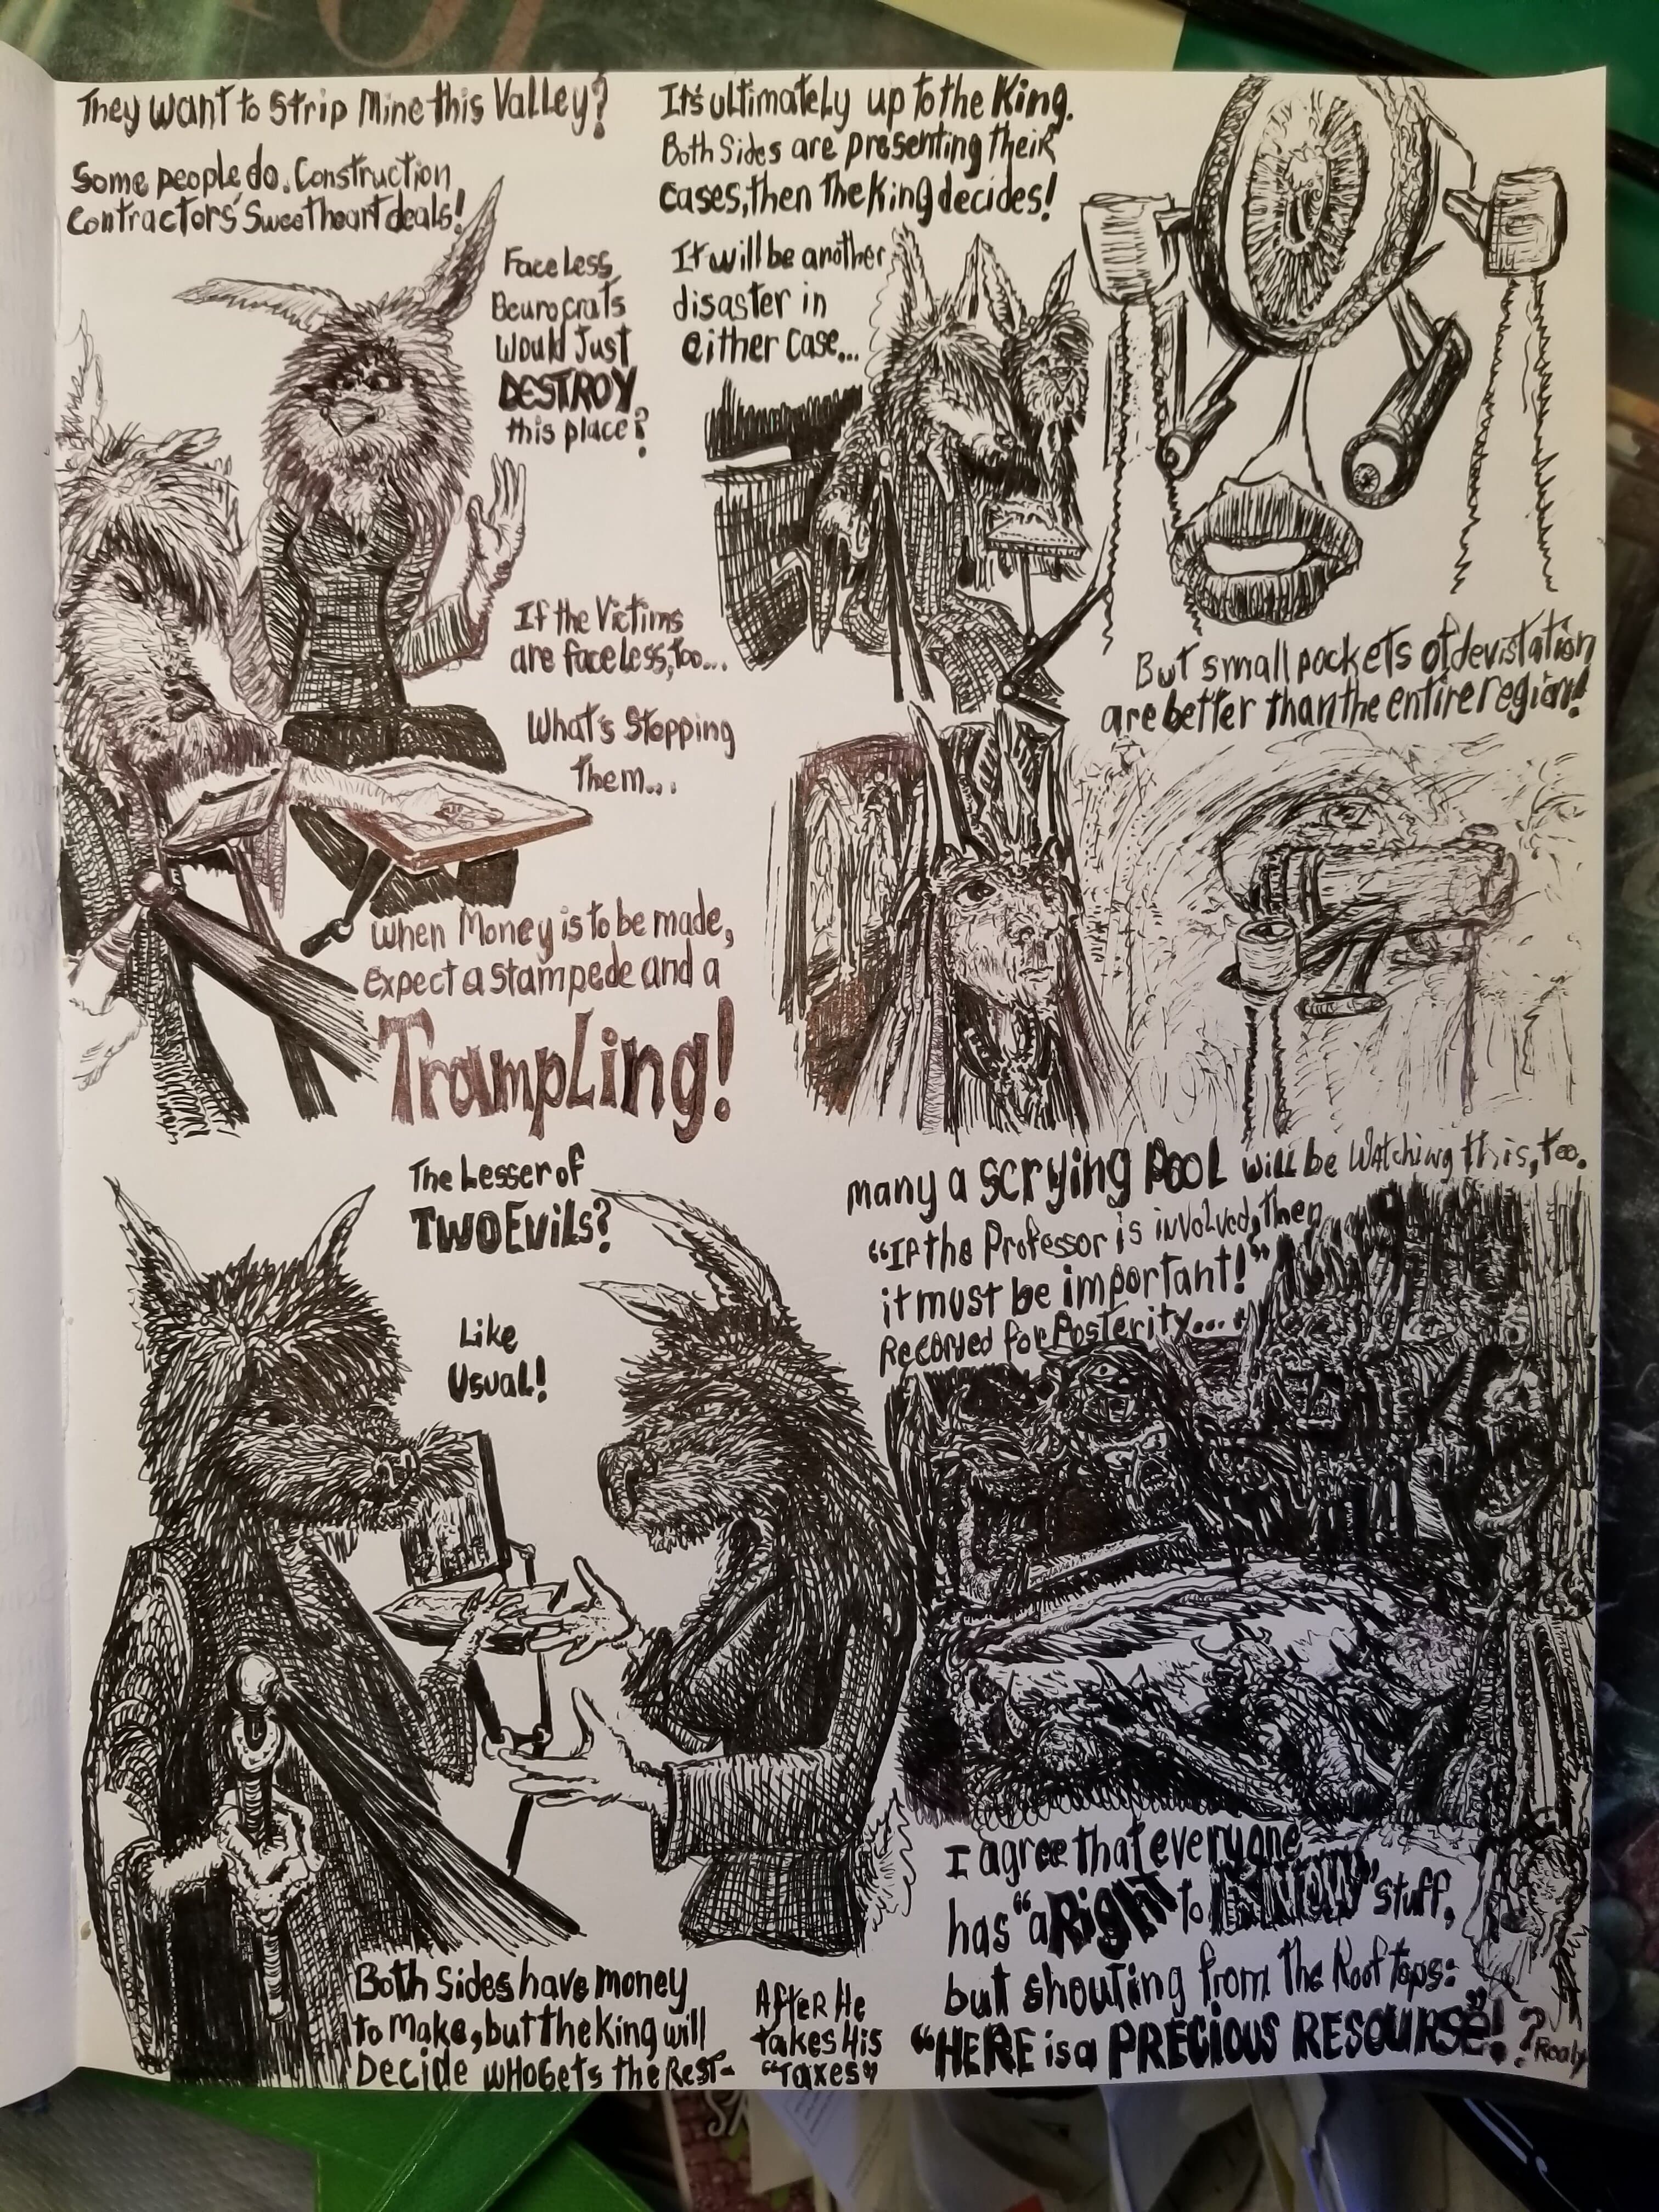 They want to Strip Mine this Valley?
Some people do. Construction
Contractors' Sweetheart deals!
Faceless
Beurocrats
Would Just
DESTROY
this place?
If the Victims
are faceless, too...
What's Stopping
Them...
When Money is to be made,
expect a stampede and a
Trampling!
It's ultimately up to the King.
Both Sides are presenting their
cases, then The King decides!
It will be another
disaster in
either case...
But small pockets of devistation
are better than the entire region!
The Lesser of
TWO Evils?
Like
Usual!
Both Sides have money
to make, but the King will
Decide who Gets the Rest-
After He
takes His
"Taxes"
many a scrying pool will be watching this, too.
"If the Professor is involved, then
it must be important!"
Recorded for Posterity...
I agree that everyone
has "a Right to KNOW" stuff,
but shouting from the Roof tops:
"HERE is a PRECIOUS RESOURSE"!?
Realy